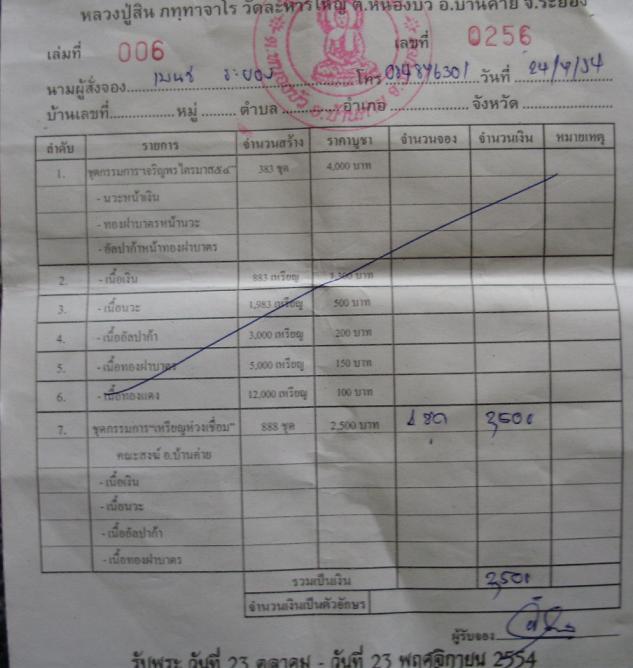 หลวงปู่สิน ภทฺทาจาโร วัดละหารใหญ่ ต.หนองบัว อ.บ้านค่าย จ.ระยอง
เล่มที่ 006 เลขที่ 0256
นามผู้สั่งจอง ระยอง โทร วันที่
บ้านเลขที่ หมู่ ตำบล อำเภอ จังหวัด
ลำดับ รายการ จำนวนสร้าง ราคาบูชา จำนวนจอง จำนวนเงิน หมายเหตุ
1. ชุดกรรมการ"เจริญพรไตรมาส๕๔" 383 ชุด 4,000 บาท
- นวะหน้าเงิน
- ทองฝาบาตรหน้านวะ
- อัลปาก้าหน้าทองฝาบาตร
2. - เนื้อเงิน 883 เหรียญ 1,300 บาท
3. - เนื้อนวะ 1,983 เหรียญ 500 บาท
4. - เนื้ออัลปาก้า 3,000 เหรียญ 200 บาท
5. - เนื้อทองฝาบาตร 5,000 เหรียญ 150 บาท
6. - เนื้อทองแดง 12,000 เหรียญ 100 บาท
7. ชุดกรรมการ"เหรียญห่วงเชื่อม" 888 ชุด 2,500 บาท ชุด
คณะสงฆ์ อ.บ้านค่าย
- เนื้อเงิน
- เนื้อนวะ
- เนื้ออัลปาก้า
- เนื้อทองฝาบาตร
รวมเป็นเงิน
จำนวนเงินเป็นตัวอักษร
ผู้รับจอง
รับพระ วันที่ 23 ตุลาคม - วันที่ 23 พฤศจิกายน 2554